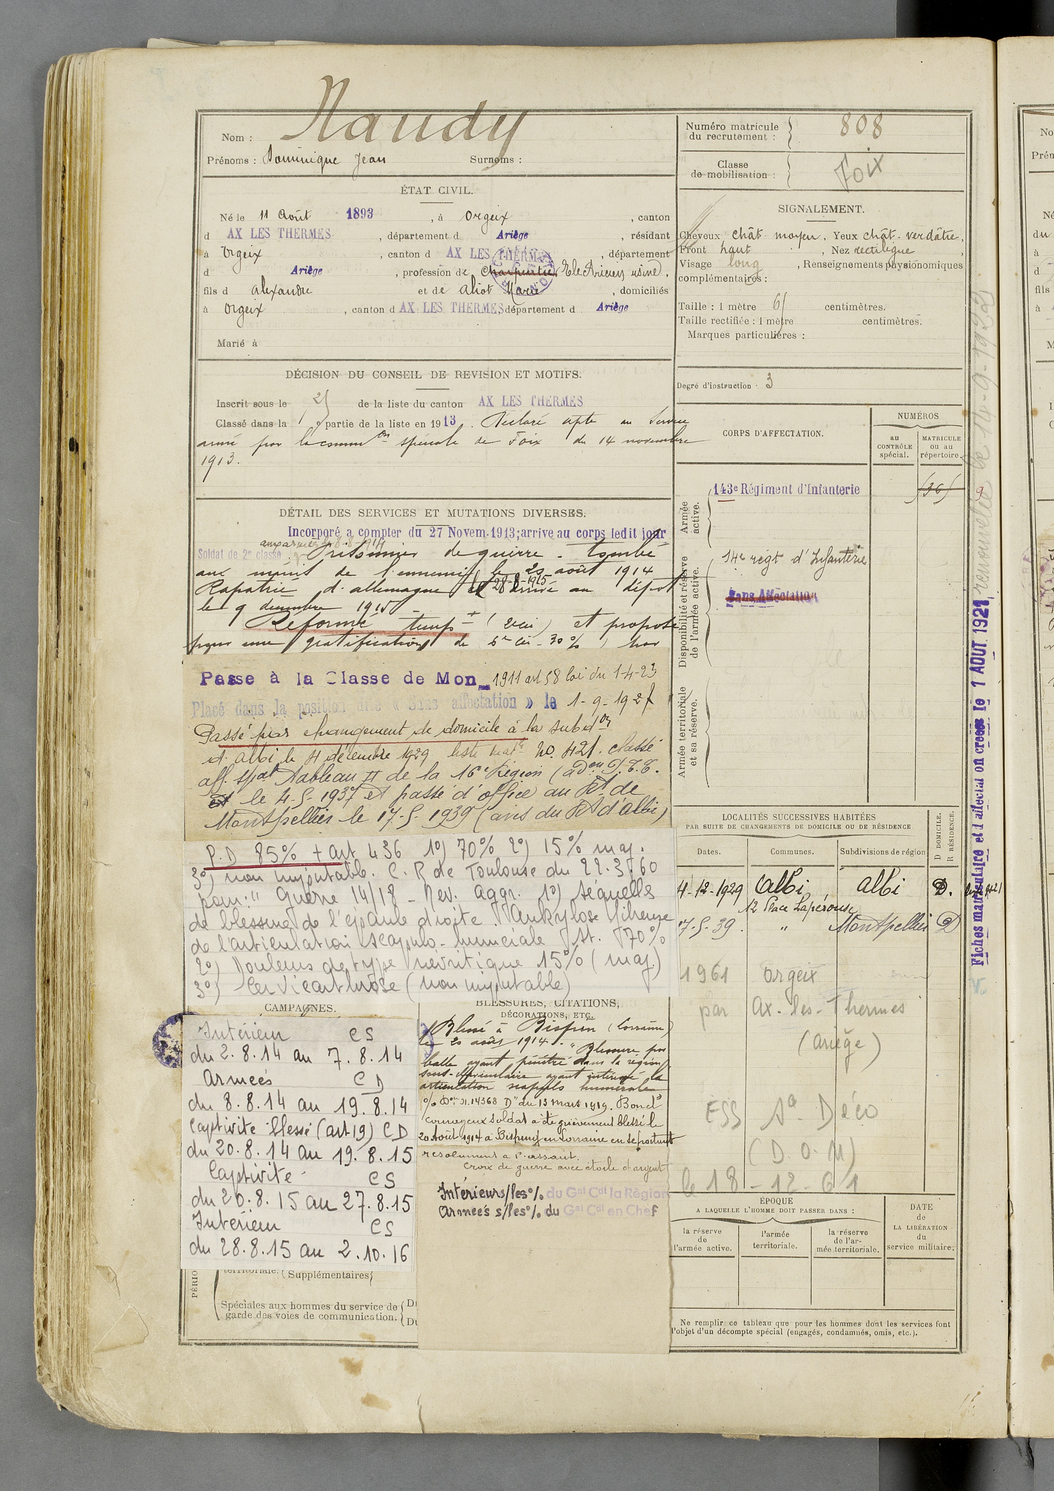 Nom : Naudy
Prénoms : Dominique Jean Surnoms :
Numéro matricule du recrutement : 808
Classe de mobilisation : Foix
ÉTAT CIVIL.
Né le 11 Août 1893, à Orgeix, canton
d AX LES THERMES, département d Ariège, résidant
à Orgeix, canton d AX LES THERMES, département
d Ariège, profession de Charpentier Electricien usine,
fils d alexandre et de aliot Marie, domiciliés
à Orgeix, canton d AX LES THERMES département d Ariège
Marié à
SIGNALEMENT.
Cheveux chât. moyen. Yeux chât. verdâtre,
Front haut, Nez rectiligne,
Visage long, Renseignements physionomiques
complémentaires :
Taille : 1 mètre 61 centimètres.
Taille rectifiée : 1 mètre centimètres.
Marques particulières :
Degré d'instruction : 3
DÉCISION DU CONSEIL DE REVISION ET MOTIFS.
Inscrit sous le 25 de la liste du canton AX LES THERMES
Classé dans la 1 partie de la liste en 1913. Déclaré apte au Service
armé par la common spéciale de Foix du 14 novembre
1913.
CORPS D'AFFECTATION.
NUMÉROS
AU CONTRÔLE spécial.
MATRICULE ou au répertoire.
Armée active.
143e Régiment d'Infanterie
Disponibilité et réserve de l'armée active.
14e regt d'Infanterie
Sans Affectation
Armée territoriale et sa réserve.
DÉTAIL DES SERVICES ET MUTATIONS DIVERSES.
Incorporé à compter du 27 Novem. 1913; arrivé au corps ledit jour
Soldat de 2e classe
Prisonnier de guerre. tombé
aux mains de l'ennemi le 20 août 1914
Rapatrié d'allemagne le 28-8-1915 arrivé au dépôt
le 9 décembre 1915
Réformé temp et proposé
pour une gratification de 30%
Passé à la Classe de Mon 1911 art 58 loi du 1-4-23
Placé dans la position dite « Sans affectation » le 1-9-1927
Passé par changement de domicile à la subdon
d'Albi le 4 décembre 1929 liste matle No 421. classé
aff. spal Tableau II de la 16e Région
le 4-5-1937 et passé d'office au Rt de
Montpellier le 17-5-1939 (avis du Rt d'albi)
P.D 85% + art 436 1°) 70% 2°) 15% maj.
3°) non imputable. C.R de Toulouse du 22.3.60
pour : " Guerre 14/18 - Rev. Aggr. 1°) Séquelles
de blessure de l'épaule droite. Ankylose fibreuse
de l'articulation scapulo-humérale 70%
2°) Douleurs de type névritique 15% (maj)
3°) Cervicarthrose (non imputable)
LOCALITÉS SUCCESSIVES HABITÉES
PAR SUITE DE CHANGEMENTS DE DOMICILE OU DE RÉSIDENCE
Dates. Communes. Subdivisions de région D DOMICILE. R RÉSIDENCE.
4-12-1929 Albi albi D.
12 Place Lapérouse
17-5-39. " Montpellier D
1961 orgeix
par Ax-les-Thermes
(ariège)
ESS Sn Déco
(D.O.M)
le 18-12-61
CAMPAGNES.
Intérieur CS
du 2.8.14 au 7.8.14
Armées CD
du 8.8.14 au 19.8.14
Captivité blessé (art 19) CD
du 20.8.14 au 19.8.15
Captivité CS
du 20.8.15 au 27.8.15
Intérieur CS
du 28.8.15 au 2.10.16
territoriale. (Supplémentaires)
Spéciales aux hommes du service de
garde des voies de communication.
BLESSURES, CITATIONS,
DÉCORATIONS, ETC.
Blessé à Bisping (lorraine)
le 20 août 1914. "Blessure par
balle ayant pénétré dans la région
articulation scapulo humérale
du 13 mars 1919. Bon et
courageux soldat a été grièvement blessé le
20 Août 1914 à Bisping en Lorraine en se portant
résolument à l'assaut.
Croix de guerre avec étoile d'argent
Intérieurs s/les % du Gal Cdt la Région
Armées s/les % du Gal Cdt en Chef
ÉPOQUE
A LAQUELLE L'HOMME DOIT PASSER DANS :
la réserve de l'armée active. l'armée territoriale. la réserve de l'armée territoriale.
DATE de LA LIBÉRATION du service militaire.
Ne remplir ce tableau que pour les hommes dont les services font
l'objet d'un décompte spécial (engagés, condamnés, omis, etc.).
Fiches matriculaire et d'affectation créées le 1 AOUT 1921, renouvelée le 14-9-1922